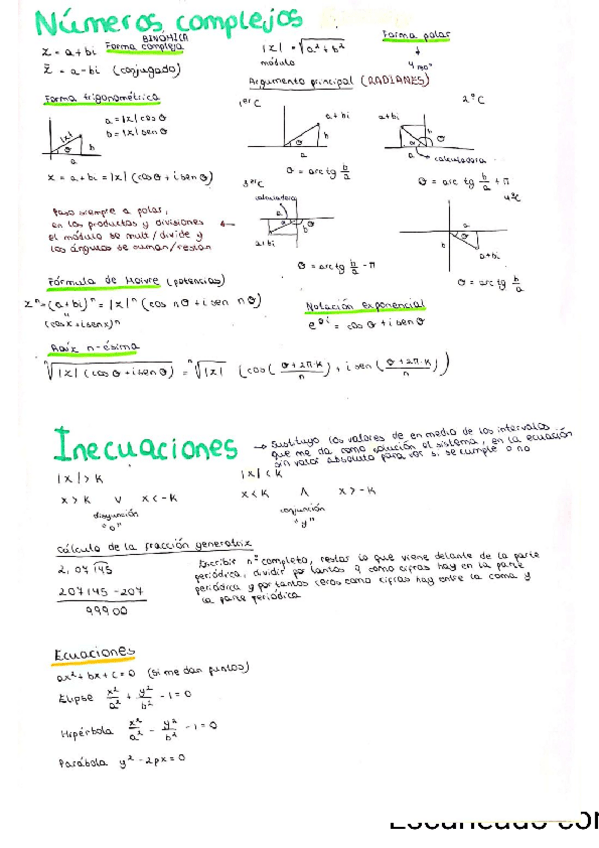 Números complejos
BINÓMICA
z = a + bi Forma compleja
z̄ = a - bi (conjugado)
|z| = √(a² + b²)
módulo
Forma polar
↓
Argumento principal (RADIANES)
Forma trigonométrica
a = |z| cos θ
b = |z| sen θ
z = a + bi = |z| (cos θ + i sen θ)
1er C
a + bi
θ = arc tg b/a
2º C
a + bi
calculadora
θ = arc tg b/a + π
Paso siempre a polar,
en los productos y divisiones
el módulo se mult/divide y
los ángulos se suman/restan
3er C
calculadora
a + bi
θ = arc tg b/a - π
4º C
a + bi
θ = arc tg b/a
Fórmula de Moivre (potencias)
zⁿ = (a + bi)ⁿ = |z|ⁿ (cos nθ + i sen nθ)
(cos x + i sen x)ⁿ
Notación exponencial
e^θi = cos θ + i sen θ
Raíz n-ésima
ⁿ√(|z| (cos θ + i sen θ)) = ⁿ√|z| (cos((θ + 2π·K)/n) + i sen((θ + 2π·K)/n))
Inecuaciones → Sustituyo los valores de en medio de los intervalos
que me da como solución el sistema, en la ecuación
sin valor absoluto para ver si se cumple o no
|x| > K
|x| < K
x > K V x < -K
x < K Λ x > -K
disyunción
"o"
conjunción
"y"
Cálculo de la fracción generatriz
2,07145
207145 - 207
99900
Escribir nº completo, restar lo que viene delante de la parte
periódica, dividir por tantos 9 como cifras hay en la parte
periódica y por tantos ceros como cifras hay entre la coma y
la parte periódica
Ecuaciones
ax² + bx + c = 0 (si me dan puntos)
Elipse x²/a² + y²/b² - 1 = 0
Hipérbola x²/a² - y²/b² - 1 = 0
Parábola y² - 2px = 0